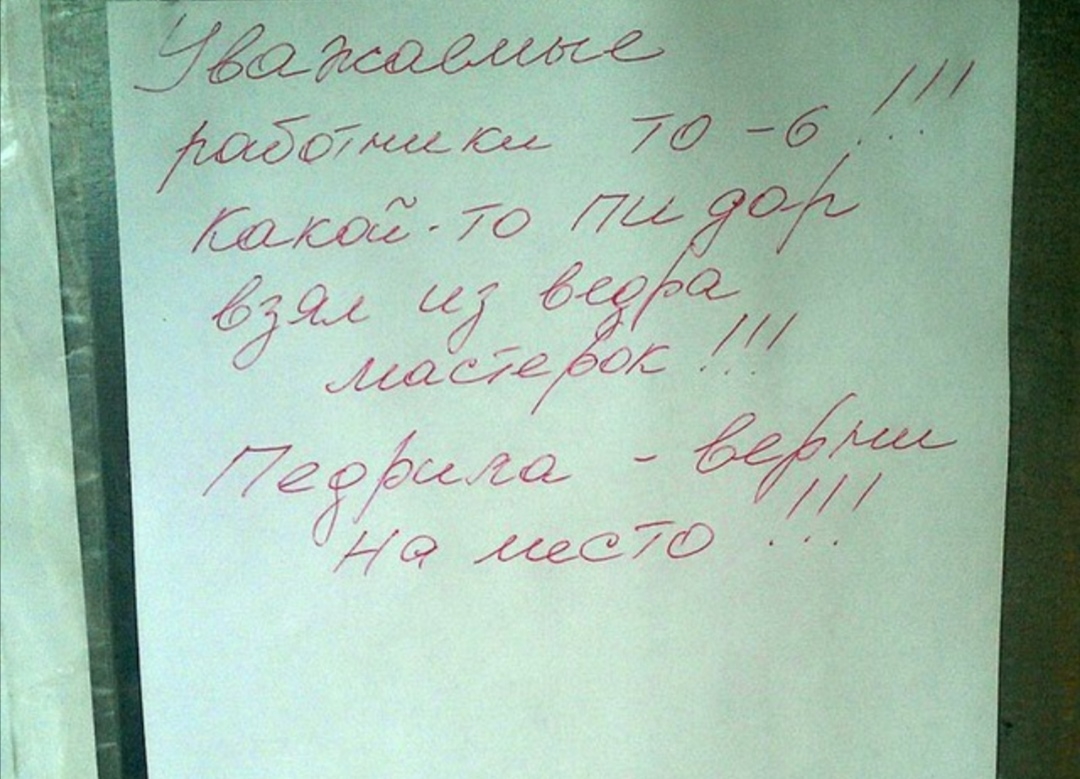 Уважаемые
работники ТО-6!!!
Какой-то пидор
взял из ведра
мастерок!!!
Педрила - верни
на место!!!